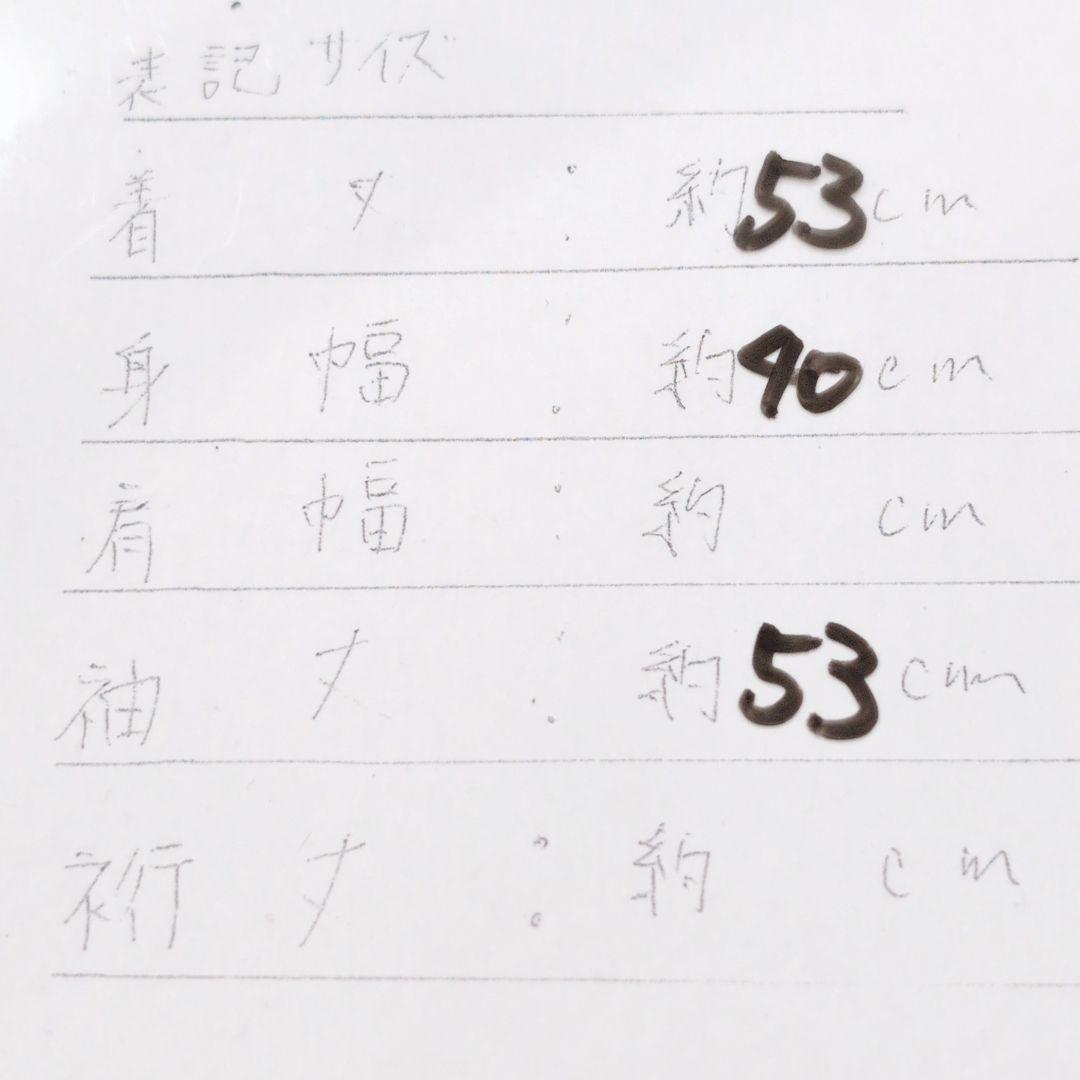 表記サイズ
着丈：約53cm
身幅：約40cm
肩幅：約 cm
袖丈：約53cm
裄丈：約 cm